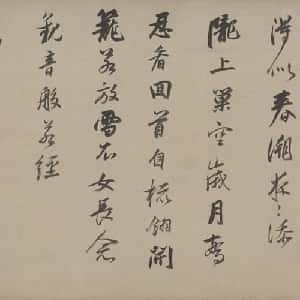 得似春潮夜〻添
隴上巢空歲月驚
忍看回首自梳翎開
籠若放雪衣女長念
觀音般若經